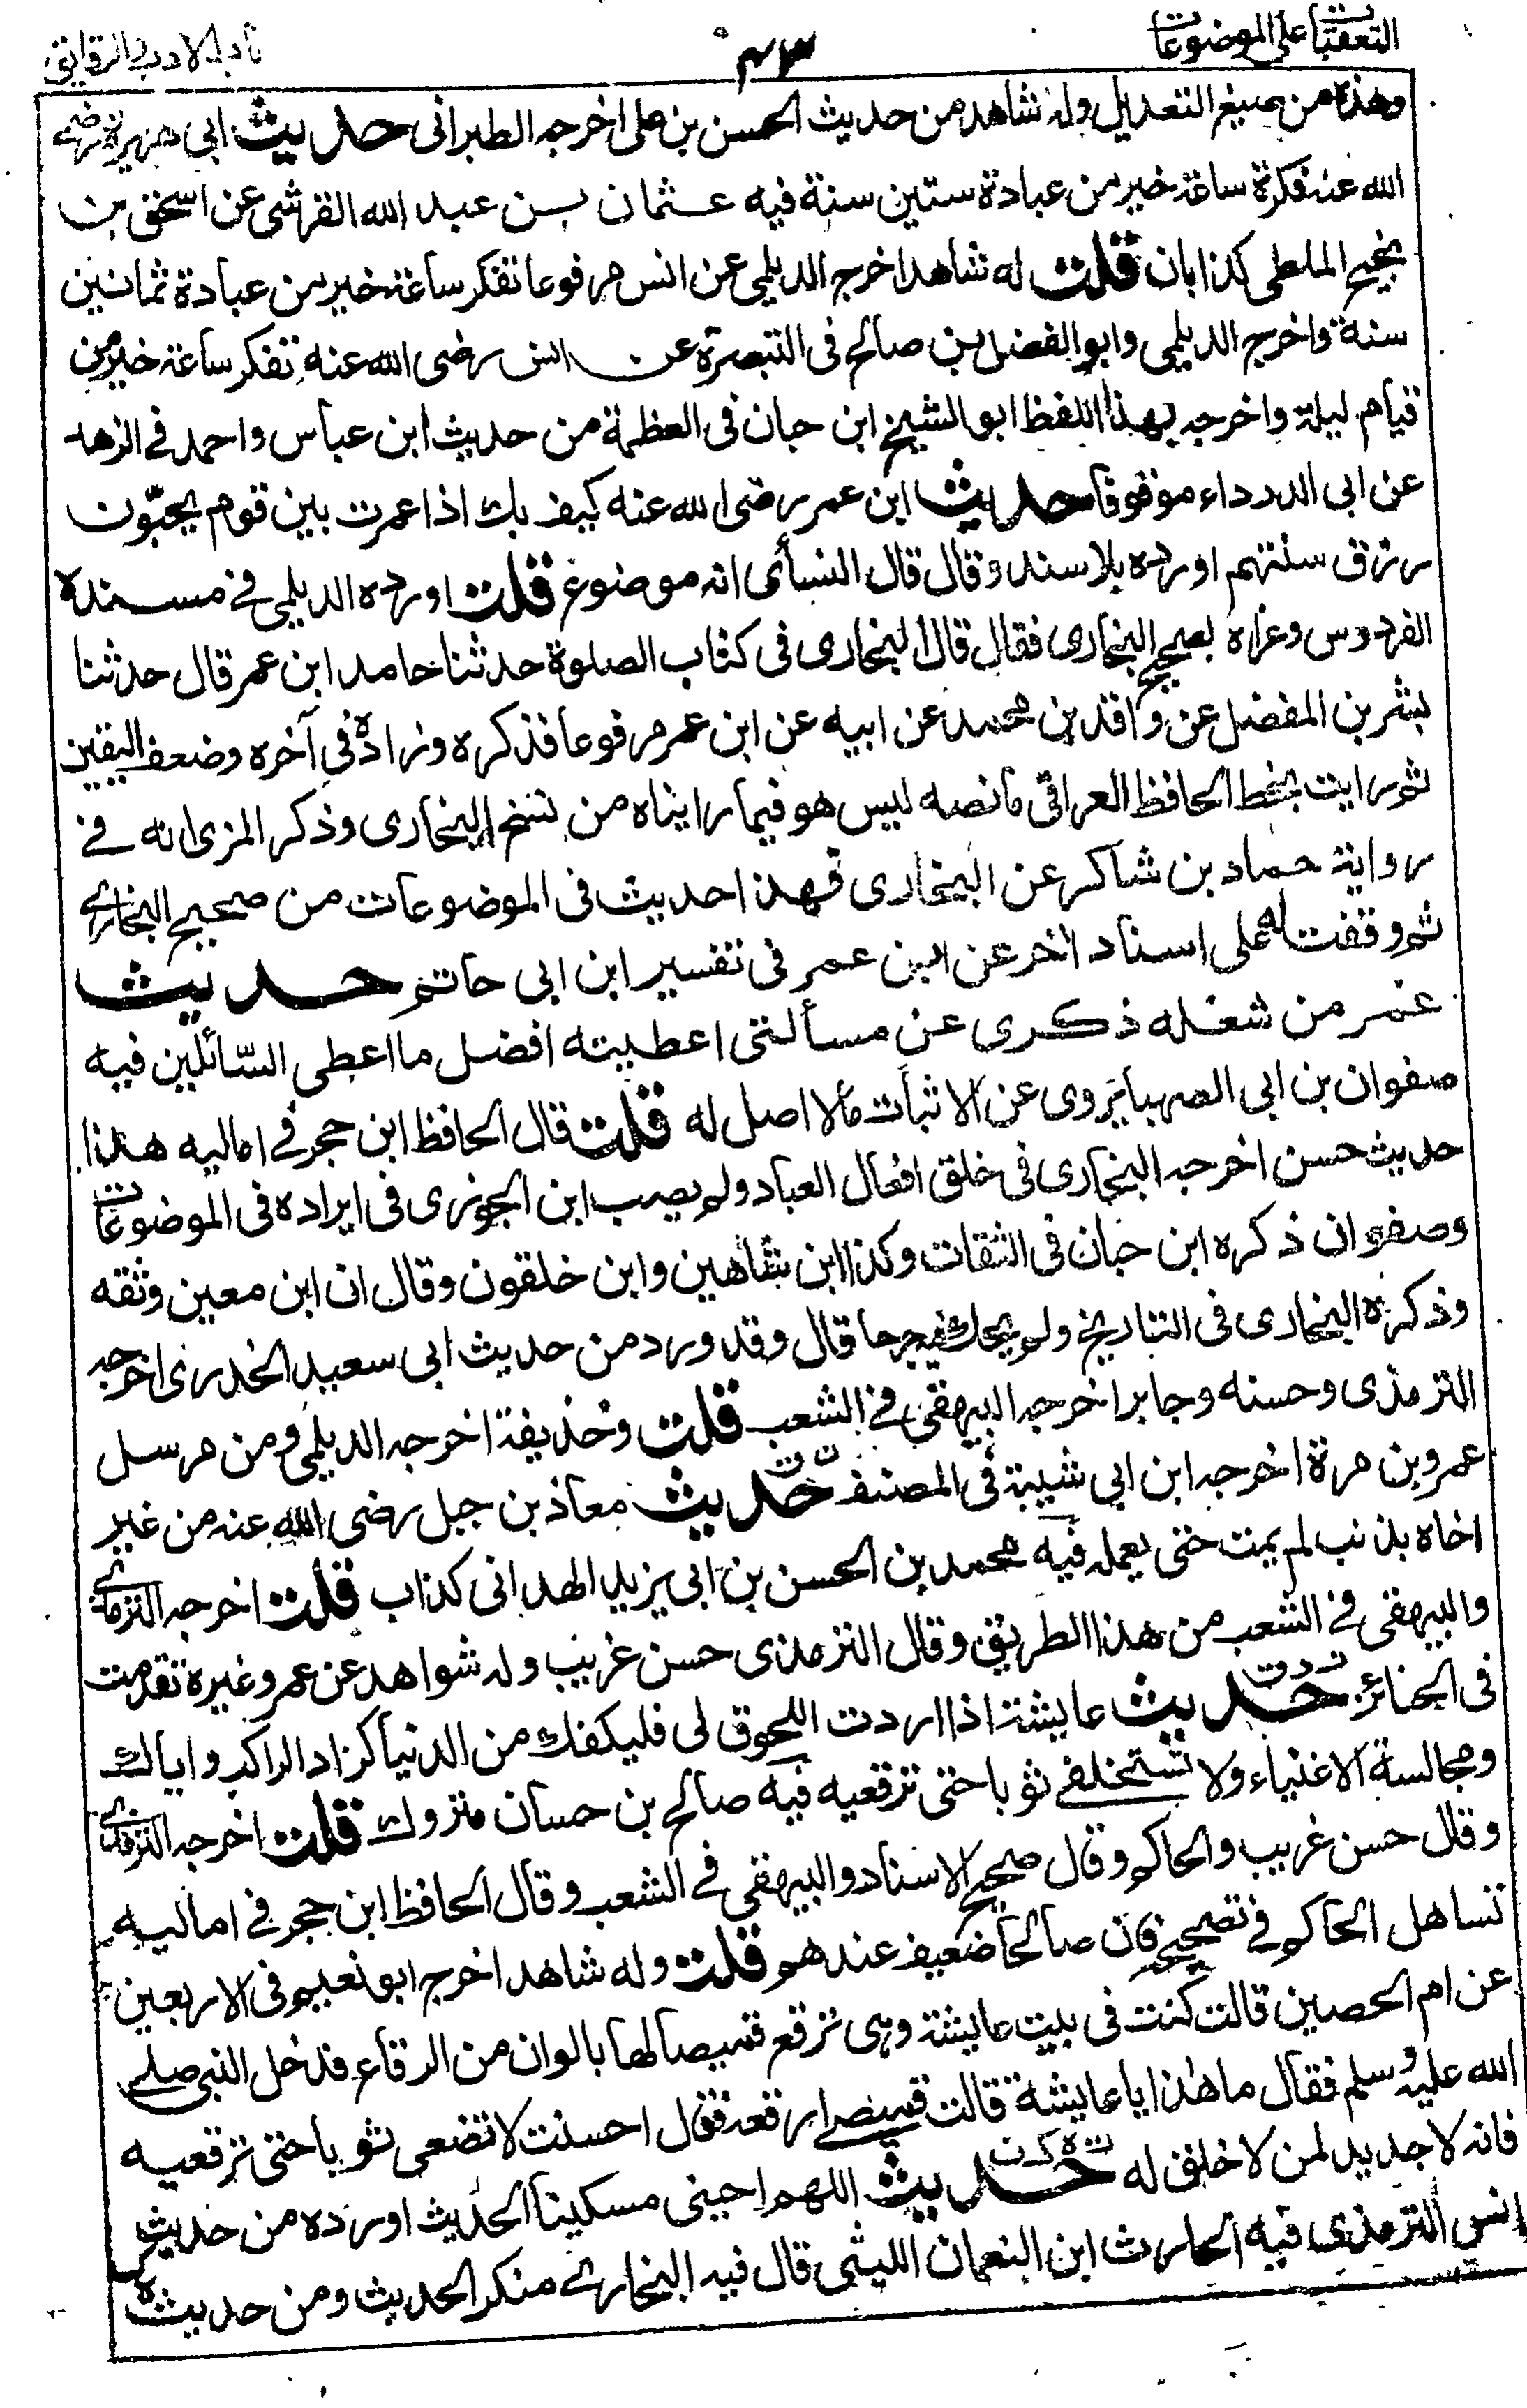 التعقبات على الموضوعات
٤٣
باب الادب والرقايق
وهذه من صيغ التعديل وله شاهد من حديث الحسن بن على اخرجه الطبرانى حديث ابي هريرة رضى
الله عنه فكرة ساعة خير من عبادة ستين سنة فيه عثمان بن عبد الله القرشى عن اسحق بن
نجيح الملطى كذابان قلت له شاهد اخرج الديلمى عن انس مرفوعا تفكر ساعة خير من عبادة ثمانين
سنة واخرج الديلمى وابو الفضل بن صالح فى التبصرة عن انس رضى الله عنه تفكر ساعة خير من
قيام ليلة واخرجه بهذا اللفظ ابو الشيخ ابن حبان فى العظمة من حديث ابن عباس واحمد فى الزهد
عن ابى الدرداء موقوفا حديث ابن عمر رضى الله عنه كيف بك اذا عمرت بين قوم يخبّون
رزق سنتهم اورده بلا سند وقال قال النسأى انه موضوع قلت اورده الديلمى فى مسنده
الفردوس وعزاه لصحيح البخارى فقال قال البخارى فى كتاب الصلوة حدثنا حامد ابن عمر قال حدثنا
بشر بن المفضل عن واقد بن محمد عن ابيه عن ابن عمر مرفوعا فذكره وزاده فى آخره وضعف اليقين
ثم رايت بخط الحافظ العراقى مانصه ليس هو فيما رايناه من نسخ البخارى وذكر المزى انه فى
رواية حماد بن شاكر عن البخارى فهذا حديث فى الموضوعات من صحيح البخارى
ثم وقفت له على اسناد اخر عن ابن عمر فى تفسير ابن ابى حاتم حديث
عمر من شغله ذكرى عن مسألتى اعطيته افضل ما اعطى السّائلين فيه
صفوان بن ابى الصهبا يروى عن الاثبات مالا اصل له قلت قال الحافظ ابن حجر فى اماليه هذا
حديث حسن اخرجه البخارى فى خلق افعال العباد ولم يصب ابن الجوزى فى ايراده فى الموضوعات
وصفوان ذكره ابن حبان فى الثقات وكذا ابن شاهين وابن خلفون وقال ان ابن معين وثقه
وذكره البخارى فى التاريخ ولم يحك فيه جرحا قال وقد ورد من حديث ابى سعيد الخدرى اخرجه
الترمذى وحسنه وجابر اخرجه البيهقى فى الشعب قلت وحذيفة اخرجه الديلمى ومن مرسل
عمرو بن مرة اخرجه ابن ابي شيبة فى المصنف حديث معاذ بن جبل رضى الله عنه من غير
اخاه بذنب لم يمت حتى يعمله فيه محمد بن الحسن بن ابى يزيد الهدانى كذاب قلت اخرجه الترمذى
والبيهقى فى الشعب من هذا الطريق وقال الترمذى حسن غريب وله شواهد عن عمر وغيره تقدمت
فى الجنائز حديث عايشة اذا اردت اللحوق لى فليكفك من الدنيا كزاد الراكب واياك
ومجالسة الاغنياء ولا تستخلفى ثوبا حتى ترقعيه فيه صالح بن حسان متروك قلت اخرجه الترمذى
وقال حسن غريب والحاكم وقال صحيح الاسناد والبيهقى فى الشعب وقال الحافظ ابن حجر فى اماليه
تساهل الحاكم فى تصحيحه فان صالحا ضعيف عندهم قلت وله شاهد اخرج ابو نعيم فى الاربعين
عن ام الحصين قالت كنت فى بيت عايشة وهى ترقع قميصا لها بالوان من الرقاع فدخل النبى صلى
الله عليه وسلم فقال ما هذا يا عايشة قالت قميصى ارقعه فقال احسنت لا تضعى ثوبا حتى ترقعيه
فانه لا جديد لمن لا خلق له حديث اللهم احينى مسكينا الحديث اورده من حديث
انس الترمذى فيه الحارث ابن النعمان الليثى قال فيه البخارى منكر الحديث ومن حديث